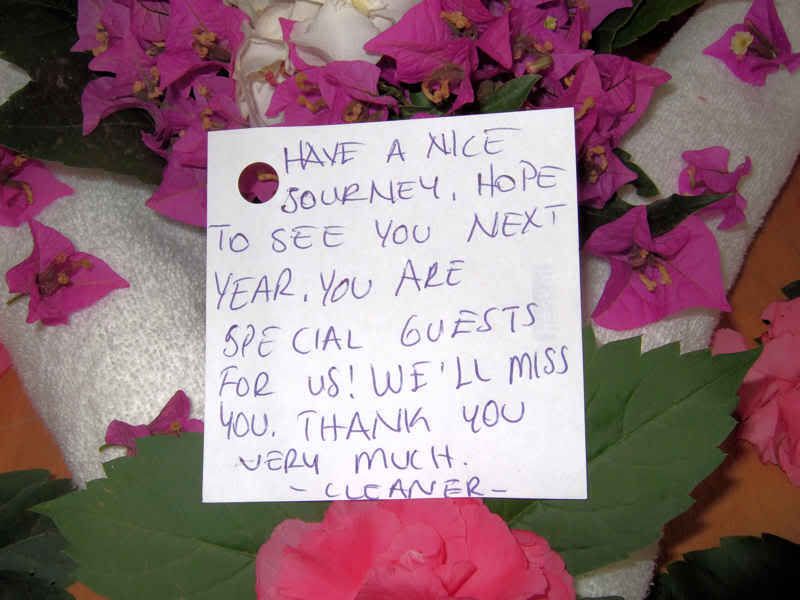 HAVE A NICE
JOURNEY. HOPE
TO SEE YOU NEXT
YEAR. YOU ARE
SPECIAL GUESTS
FOR US! WE'LL MISS
YOU. THANK YOU
VERY MUCH.
- CLEANER -